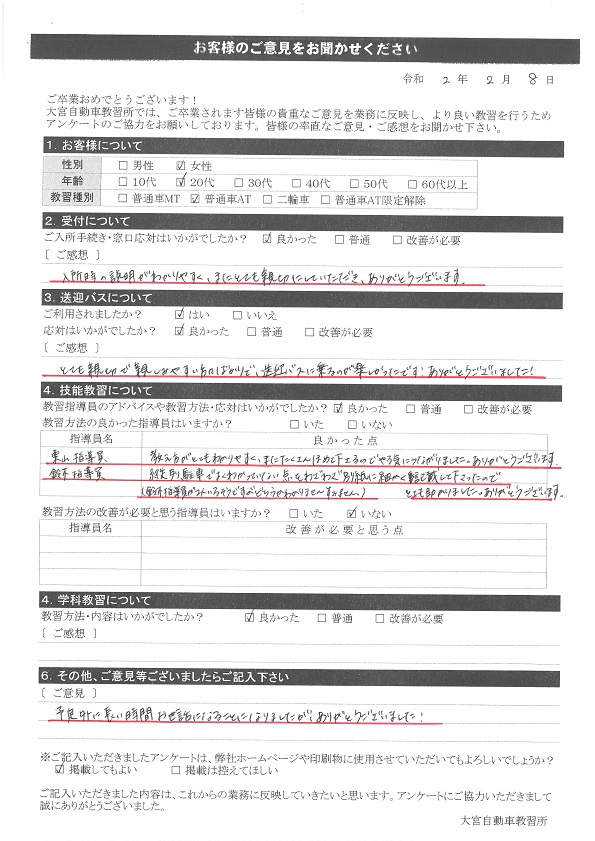 お客様のご意見をお聞かせください
令和 2 年 2 月 8 日
ご卒業おめでとうございます！
大宮自動車教習所では、ご卒業されます皆様の貴重なご意見を業務に反映し、より良い教習を行うため
アンケートのご協力をお願いしております。皆様の率直なご意見・ご感想をお聞かせ下さい。
1. お客様について
性別 □ 男性 ☑ 女性
年齢 □ 10代 ☑ 20代 □ 30代 □ 40代 □ 50代 □ 60代以上
教習種別 □ 普通車MT ☑ 普通車AT □ 二輪車 □ 普通車AT限定解除
2. 受付について
ご入所手続き・窓口応対はいかがでしたか？ ☑ 良かった □ 普通 □ 改善が必要
〔 ご感想 〕
入所時の説明がわかりやすく、またとても親切にしていただき、ありがとうございます。
3. 送迎バスについて
ご利用されましたか？ ☑ はい □ いいえ
応対はいかがでしたか？ ☑ 良かった □ 普通 □ 改善が必要
〔 ご感想 〕
とても親切で親しみやすい方ばかりで、送迎バスに乗るのが楽しかったです！ありがとうございました！
4. 技能教習について
教習指導員のアドバイスや教習方法・応対はいかがでしたか？ ☑ 良かった □ 普通 □ 改善が必要
教習方法の良かった指導員はいますか？ □ いた □ いない
指導員名 良かった点
東山指導員 教え方がとてもわかりやすく、またたくさんほめて下さるのでやる気につながりました。ありがとうございます。
鈴木指導員 縦列駐車でよくわかっていない点をわざわざ別紙に細かく記載して下さったので
(鈴木指導員が2人いるそうですがどちらかわかりませんすみません) とても助かりました。ありがとうございます。
教習方法の改善が必要と思う指導員はいますか？ □ いた ☑ いない
指導員名 改善が必要と思う点
4. 学科教習について
教習方法・内容はいかがでしたか？ ☑ 良かった □ 普通 □ 改善が必要
〔 ご感想 〕
6. その他、ご意見等ございましたらご記入下さい
〔 ご意見 〕
予定外に長い時間お世話になることになりましたが、ありがとうございました！
※ご記入いただきましたアンケートは、弊社ホームページや印刷物に使用させていただいてもよろしいでしょうか？
☑ 掲載してもよい □ 掲載は控えてほしい
ご記入いただきました内容は、これからの業務に反映していきたいと思います。アンケートにご協力いただきまして
誠にありがとうございました。
大宮自動車教習所